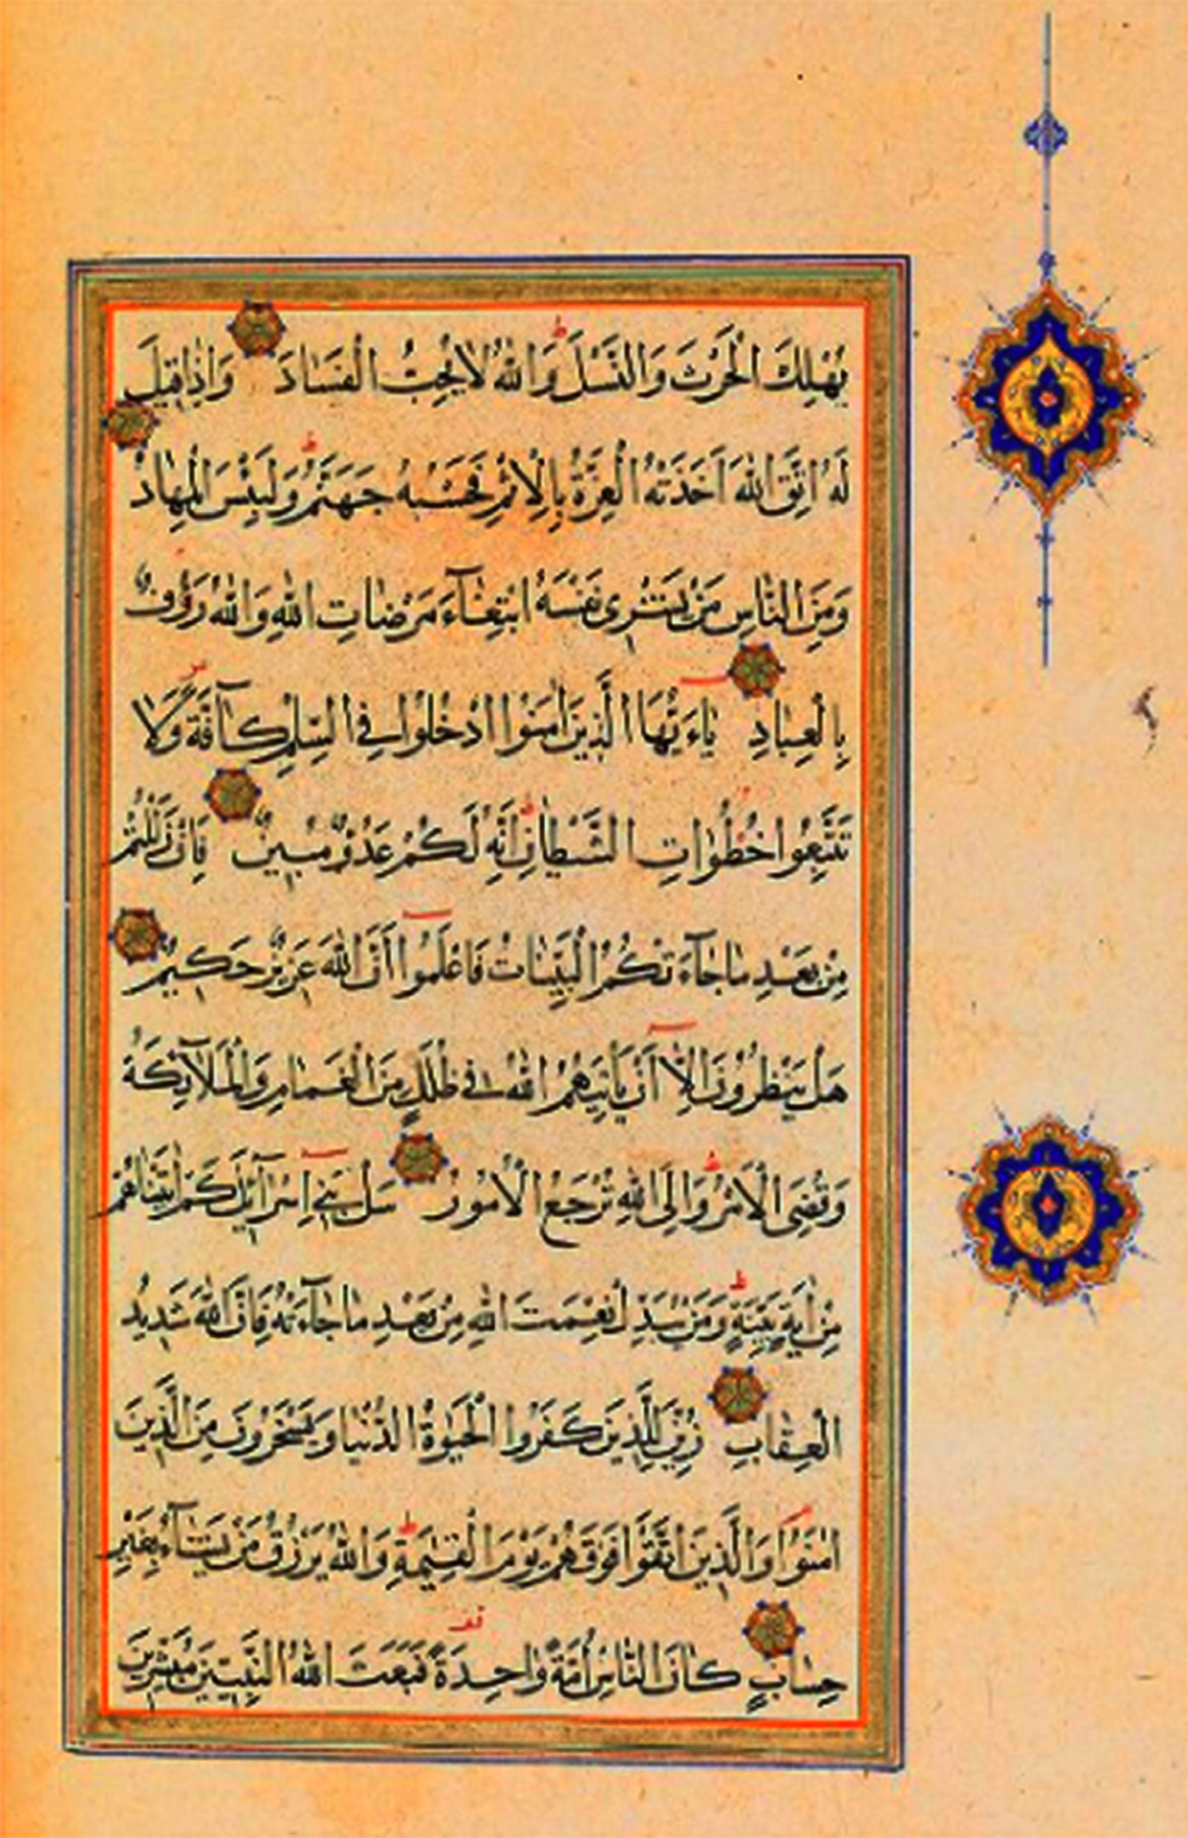 يُهْلِكَ الْحَرْثَ وَالنَّسْلَ ط وَاللّٰهُ لَا يُحِبُّ الْفَسَادَ وَاِذَا قِيلَ
لَهُ اتَّقِ اللّٰهَ اَخَذَتْهُ الْعِزَّةُ بِالْاِثْمِ فَحَسْبُهُ جَهَنَّمُ ط وَلَبِئْسَ الْمِهَادُ
وَمِنَ النَّاسِ مَنْ يَشْرِى نَفْسَهُ ابْتِغَآءَ مَرْضَاتِ اللّٰهِ وَاللّٰهُ رَؤُفٌ
بِالْعِبَادِ يَاءَيُّهَا الَّذِينَ اٰمَنُوا ادْخُلُوا فِى السِّلْمِ كَآفَّةً وَلَا
تَتَّبِعُوا خُطُوَاتِ الشَّيْطَانِ ط اِنَّهُ لَكُمْ عَدُوٌّ مُبِينٌ فَاِنْ زَلَلْتُمْ
مِنْ بَعْدِ مَا جَآءَتْكُمُ الْبَيِّنَاتُ فَاعْلَمُوا اَنَّ اللّٰهَ عَزِيزٌ حَكِيمٌ
هَلْ يَنْظُرُونَ اِلَّا اَنْ يَأْتِيَهُمُ اللّٰهُ فِى ظُلَلٍ مِنَ الْغَمَامِ وَالْمَلَآئِكَةُ
وَقُضِىَ الْاَمْرُ ط وَاِلَى اللّٰهِ تُرْجَعُ الْاُمُورُ سَلْ بَنِى اِسْرَآئِلَ كَمْ اٰتَيْنَاهُمْ
مِنْ اٰيَةٍ بَيِّنَةٍ ط وَمَنْ يُبَدِّلْ نِعْمَتَ اللّٰهِ مِنْ بَعْدِ مَا جَآءَتْهُ فَاِنَّ اللّٰهَ شَدِيدُ
الْعِقَابِ زُيِّنَ لِلَّذِينَ كَفَرُوا الْحَيٰوةُ الدُّنْيَا وَيَسْخَرُونَ مِنَ الَّذِينَ
اٰمَنُوا وَالَّذِينَ اتَّقَوْا فَوْقَهُمْ يَوْمَ الْقِيٰمَةِ ط وَاللّٰهُ يَرْزُقُ مَنْ يَشَآءُ بِغَيْرِ
حِسَابٍ كَانَ النَّاسُ اُمَّةً وَاحِدَةً قف فَبَعَثَ اللّٰهُ النَّبِيّٖنَ مُبَشِّرِينَ